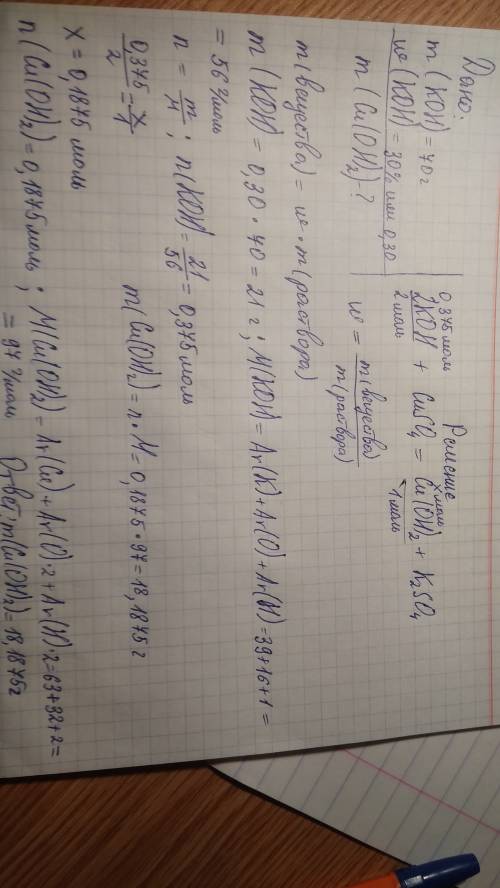 Дано:
m(KOH) = 70 г
w(KOH) = 30% или 0,30
m(Cu(OH)₂) - ?
Решение
0,375 моль x моль
2KOH + CuCl₂ = Cu(OH)₂ + K₂SO₄
2 моль 1 моль
w = m(вещества) / m(раствора)
m(вещества) = w · m(раствора)
m(KOH) = 0,30 · 70 = 21 г; M(KOH) = Ar(K) + Ar(O) + Ar(H) = 39 + 16 + 1 =
= 56 г/моль
n = m/M; n(KOH) = 21/56 = 0,375 моль
0,375/2 = x/1
m(Cu(OH)₂) = n · M = 0,1875 · 97 = 18,1875 г
x = 0,1875 моль
n(Cu(OH)₂) = 0,1875 моль; M(Cu(OH)₂) = Ar(Cu) + Ar(O)·2 + Ar(H)·2 = 63 + 32 + 2 =
= 97 г/моль Ответ: m(Cu(OH)₂) = 18,1875 г